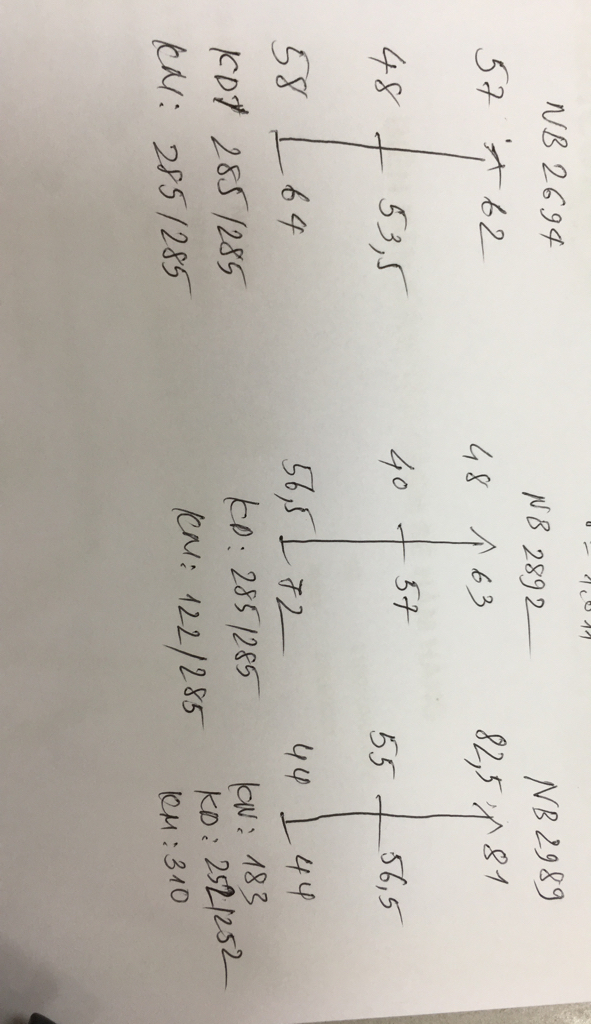 NB 2694
57 62
48 53,5
58 64
KD: 285/285
KM: 285/285
NB 2892
48 63
40 57
56,5 72
KD: 285/285
KM: 122/285
NB 2989
82,5 81
55 56,5
44 44
KW: 183
KD: 252/252
KM: 310